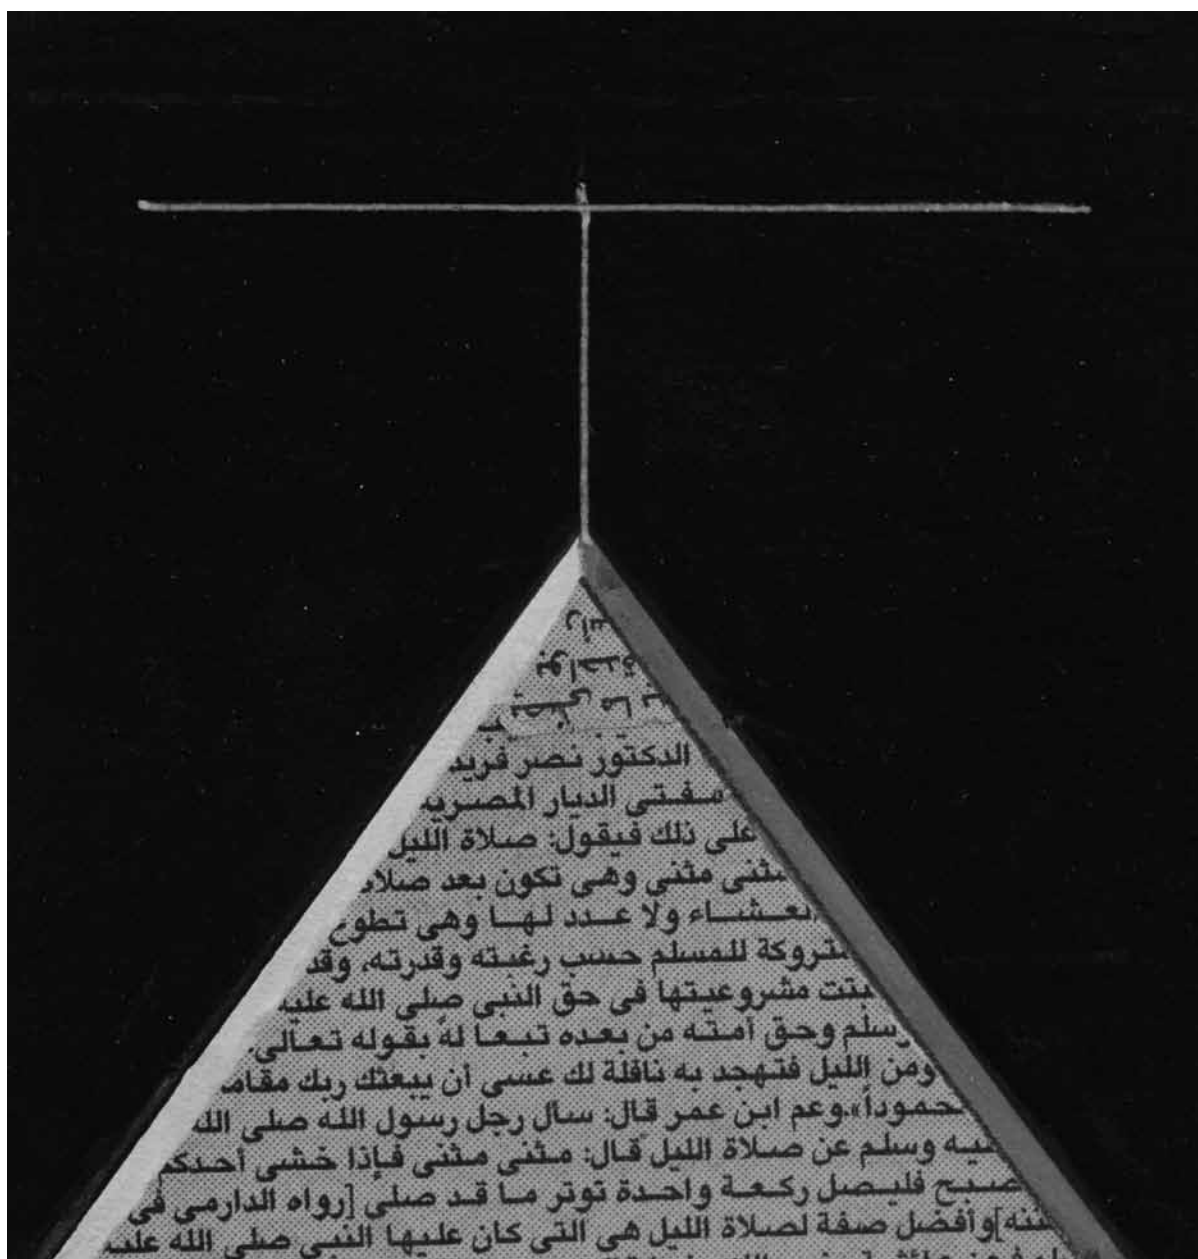 الدكتور نصر فريد
مفتى الديار المصرية
على ذلك فيقول: صلاة الليل
مثنى مثني وهى تكون بعد صلاة
العشاء ولا عدد لها وهى تطوع
متروكة للمسلم حسب رغبته وقدرته، وقد
ثبتت مشروعيتها فى حق النبى صلى الله عليه
وسلم وحق أمته من بعده تبعا له بقوله تعالى.
ومن الليل فتهجد به نافلة لك عسى أن يبعثك ربك مقاما
محموداً».وعم ابن عمر قال: سأل رجل رسول الله صلى الله
عليه وسلم عن صلاة الليل قال: مثنى مثنى فإذا خشى أحدكم
صبح فليصل ركعة واحدة توتر ما قد صلى [رواه الدارمى فى
سننه]وأفضل صفة لصلاة الليل هى التى كان عليها النبى صلى الله عليه